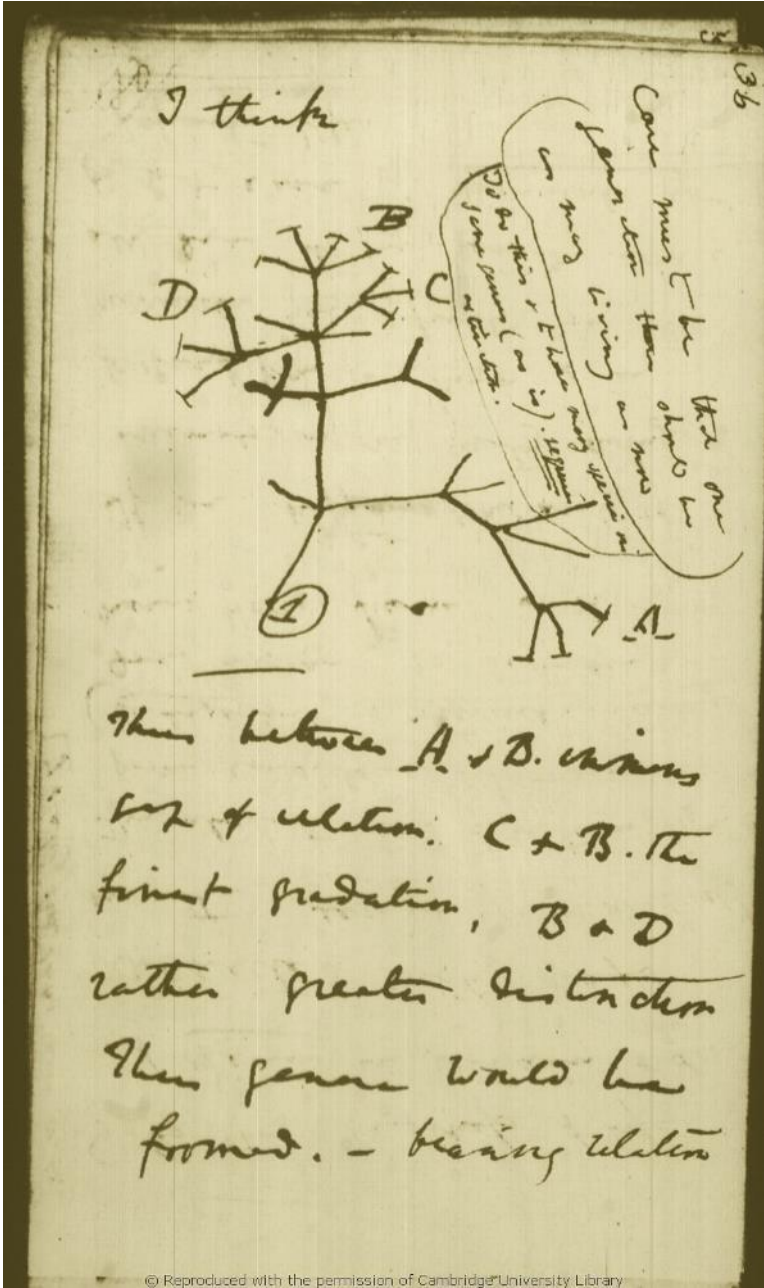 36
I think
B
D
C
A
1
Case must be that one
generation then should be
as many living as now
To do this & to have many species in
same genus (as is). requires
extinction.
Thus between A & B. immens
gap of relation. C & B. the
finest gradation, B & D
rather greater distinction
Thus genera would be
formed. — bearing relation
© Reproduced with the permission of Cambridge University Library